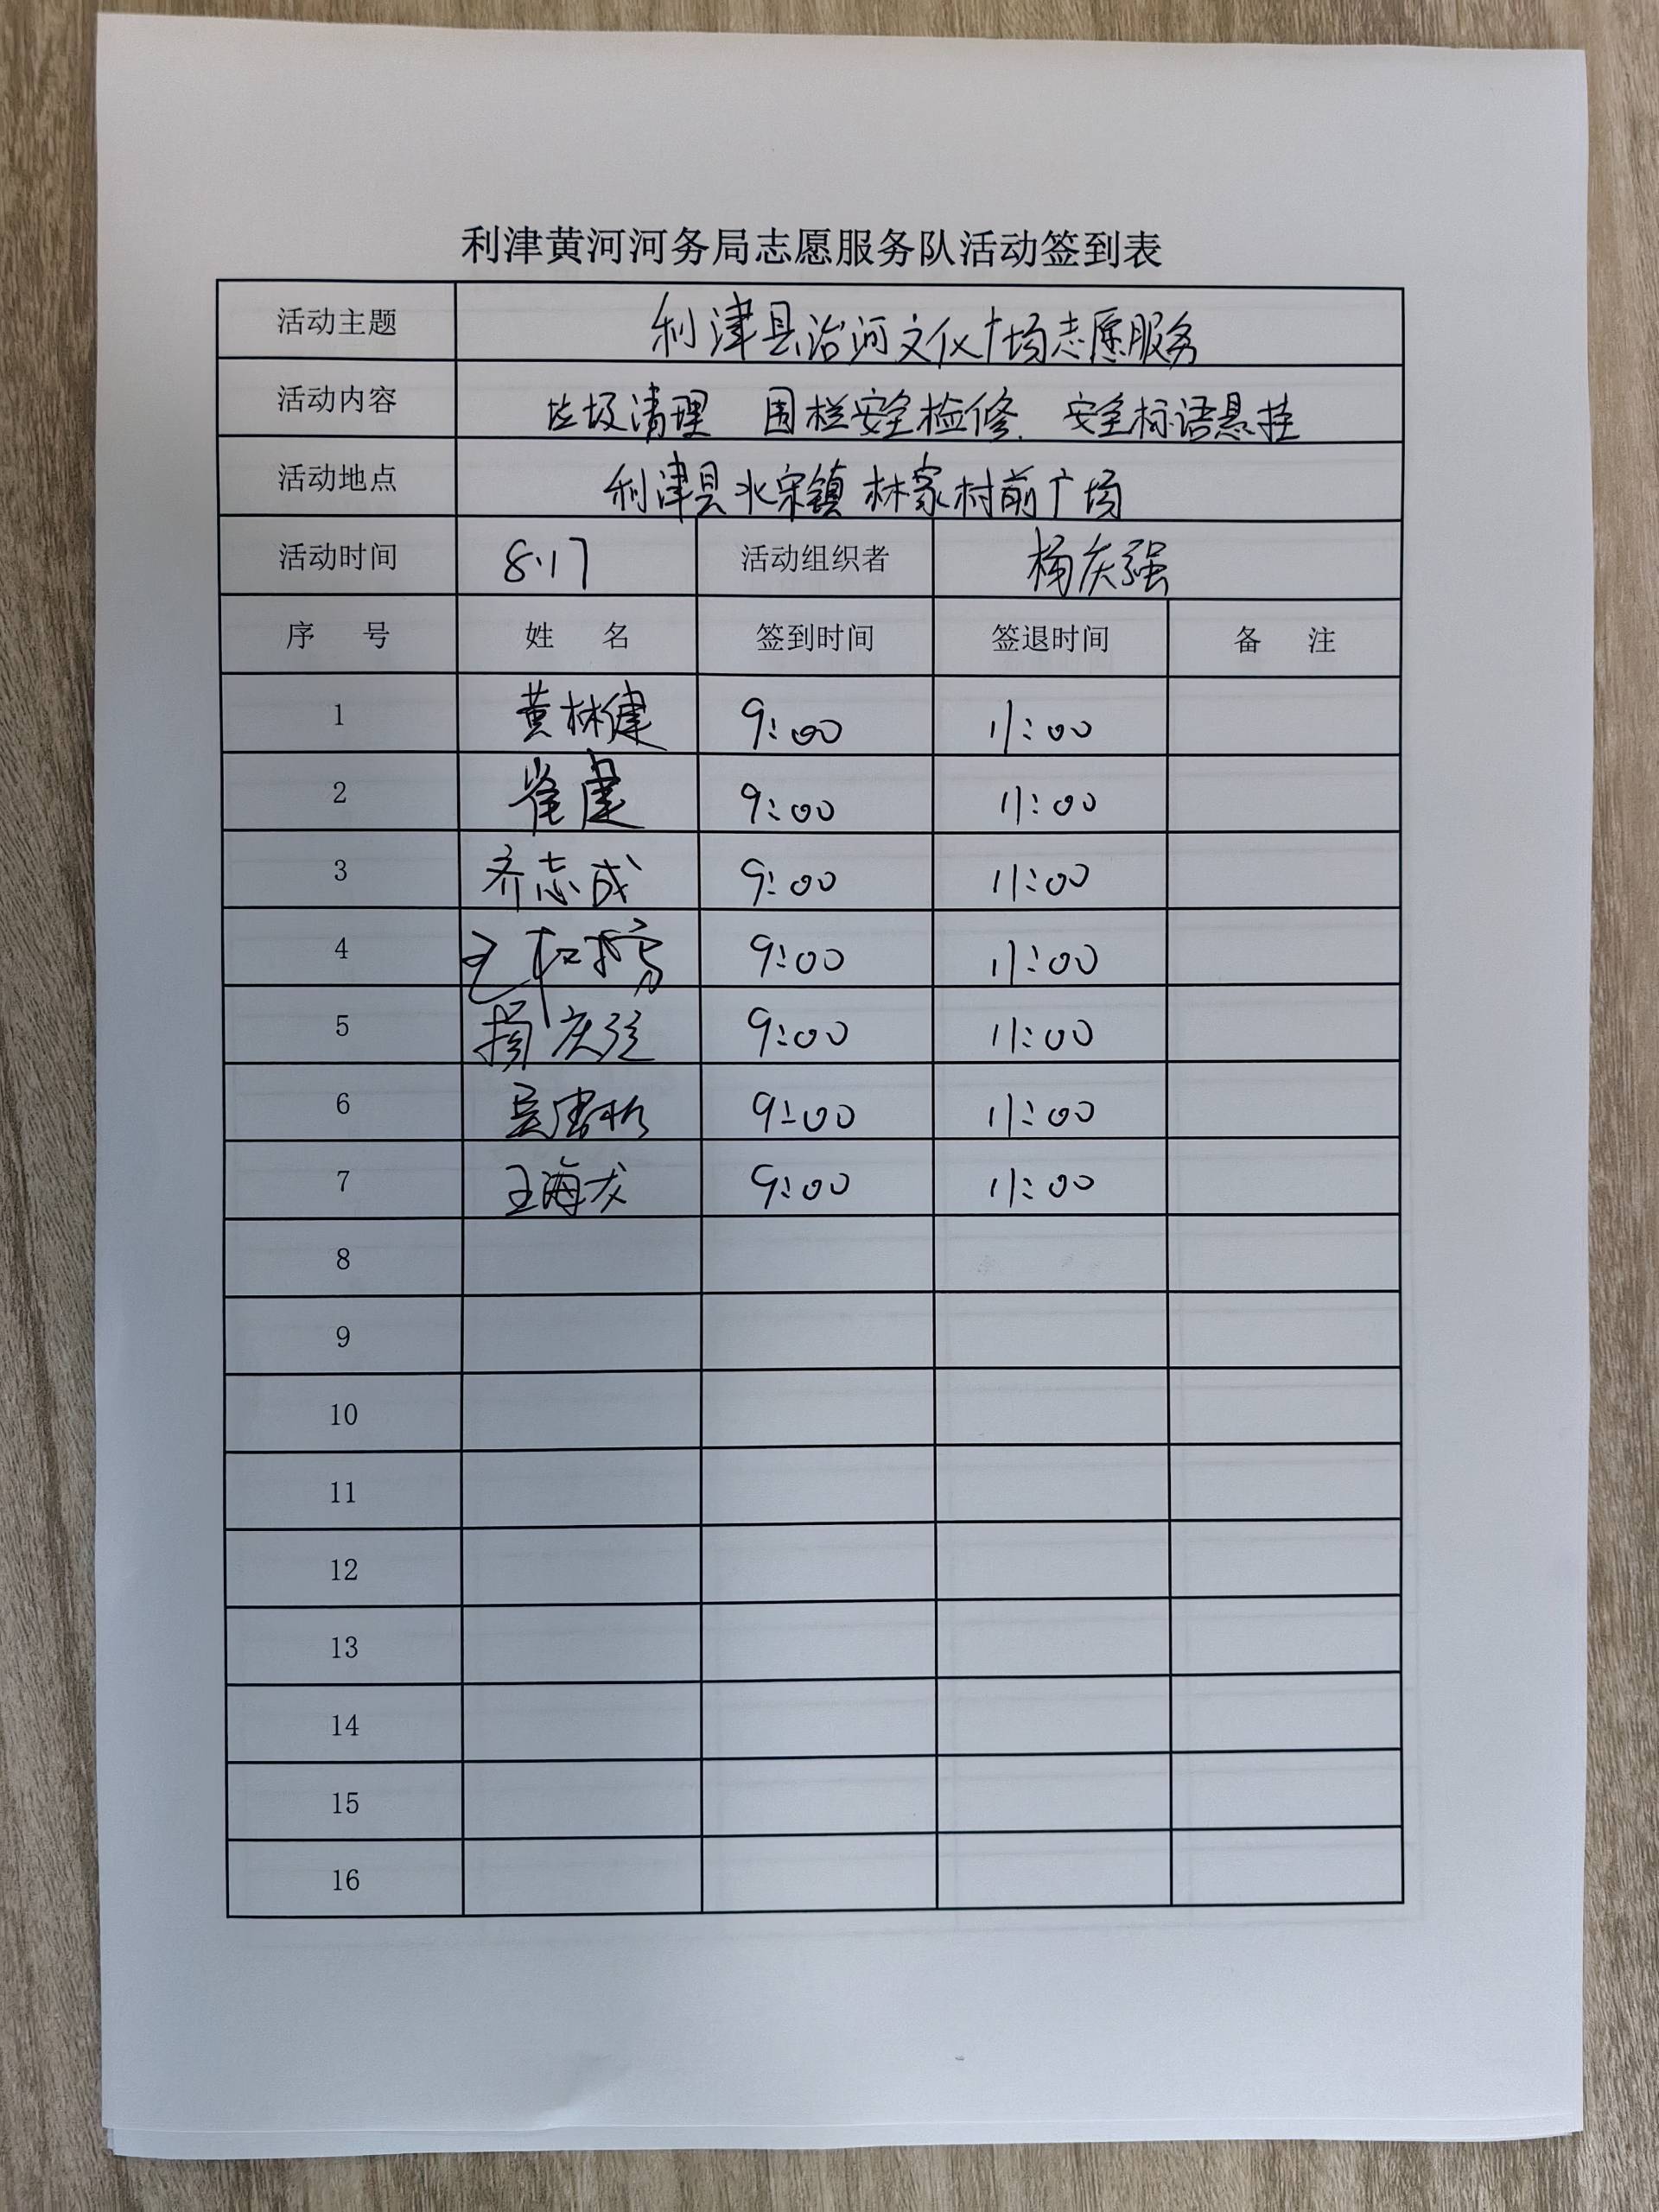 利津黄河河务局志愿服务队活动签到表
活动主题 利津县治河文化广场志愿服务
活动内容 垃圾清理 围栏安全检修. 安全标语悬挂
活动地点 利津县北宋镇林家村前广场
活动时间 8.17 活动组织者 杨庆强
序 号 姓 名 签到时间 签退时间 备 注
1 黄林健 9:00 11:00
2 崔建 9:00 11:00
3 齐志成 9:00 11:00
4 9:00 11:00
5 杨庆强 9:00 11:00
6 9:00 11:00
7 王海龙 9:00 11:00
8
9
10
11
12
13
14
15
16